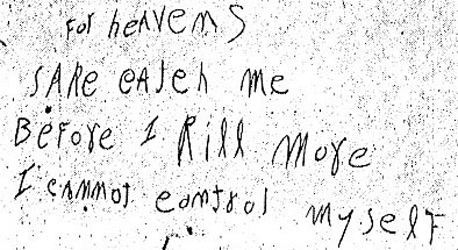 For heAVENS
SAKe cAtch me
BeFore I Kill More
I cannot control myselF